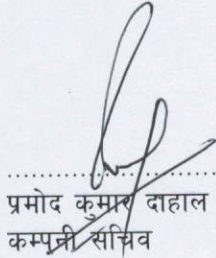 प्रमोद कुमार दाहाल
कम्पनी सचिव